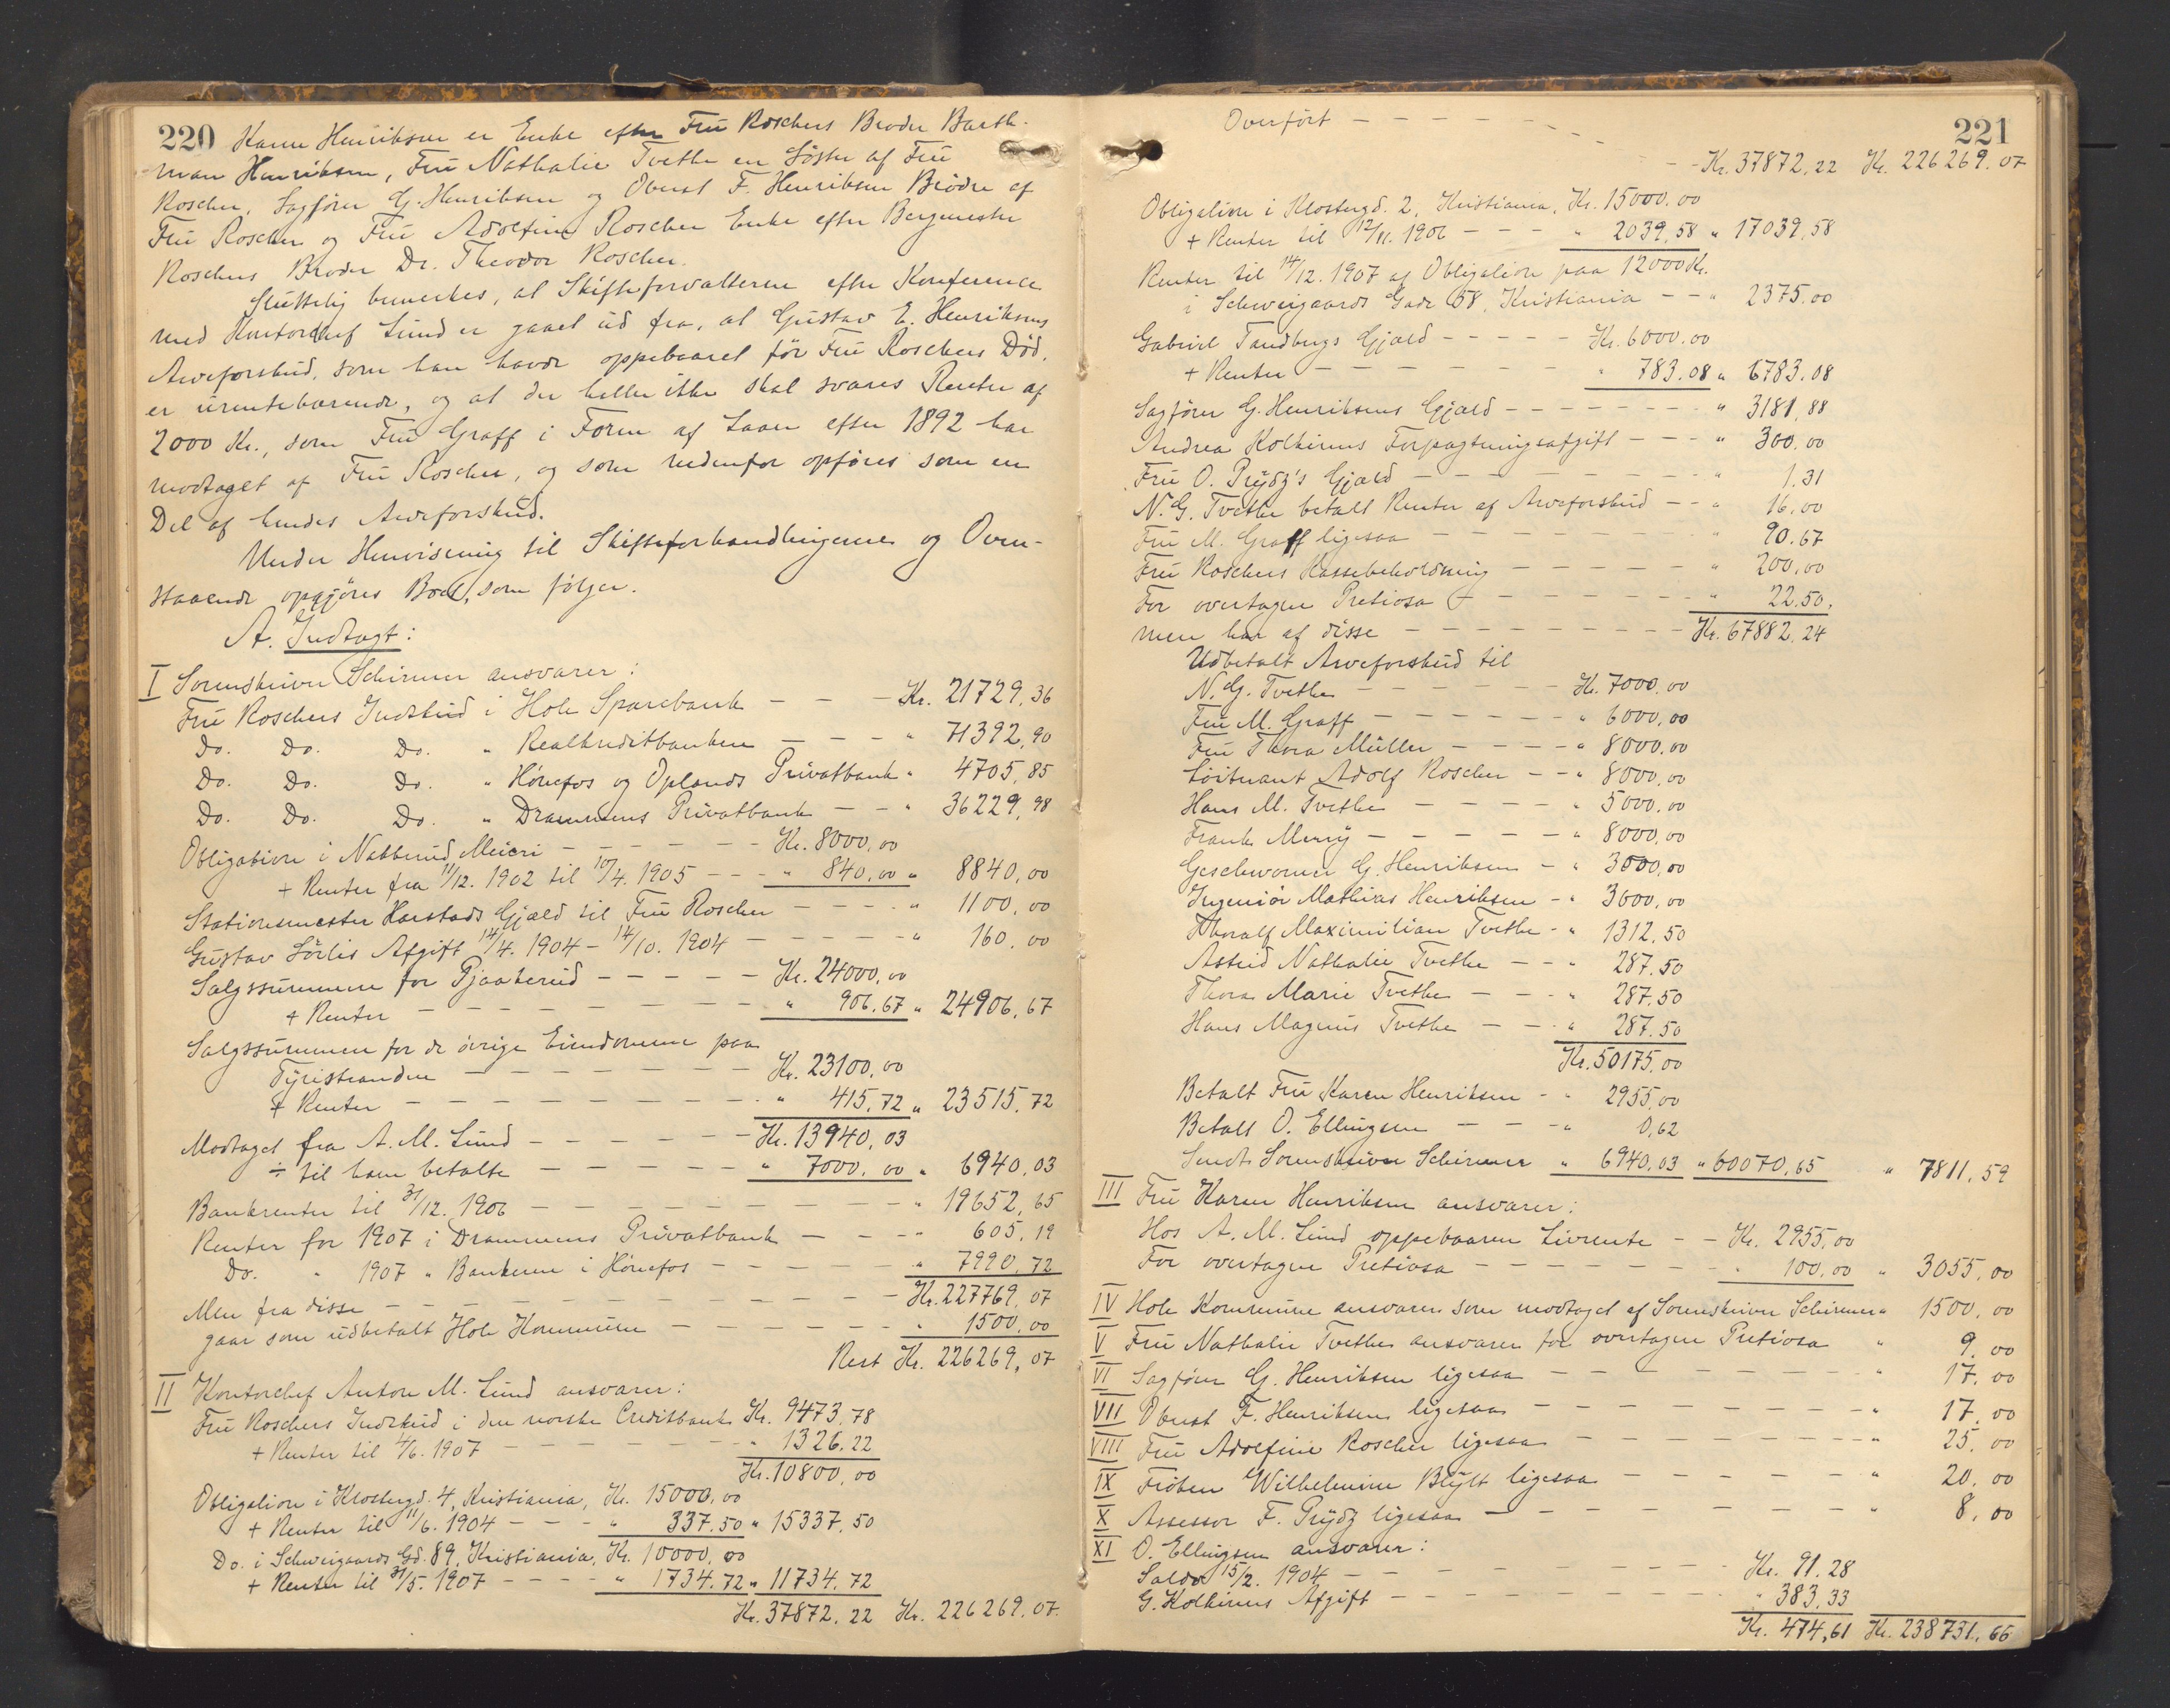 220
Karen Henriksen er Enke efter Fru Roschers Broder Barth-
man Henriksen, Fru Nathalie Tvethe en Søster af Fru
Roscher, Sagfører G. Henriksen og Oberst F. Henriksen Brødre af
Fru Roscher og Fru Adolfine Roscher Enke efter Bergmester
Roschers Broder Dr. Theodor Roscher.
Sluttelig bemerkes, at Skifteforvalteren efter Konference
med Kontorchef Lund er gaaet ud fra, at Gustav E. Henriksens
Arveforskud, som han havde oppebaaret før Fru Roschers Død,
er urentebærende, og at der heller ikke skal svares Renter af
2000 Kr., som Fru Graff i Form af Laan efter 1892 har
modtaget af Fru Roscher, og som nedenfor opføres som en
Del af hendes Arveforskud.
Under Henvisning til Skifteforhandlingerne og Oven-
staaende opgjøres Boet, som følger.
A. Indtægt:
I Sorenskriver Schirmer ansvarer:
Fru Roschers Indskud i Hole Sparebank - - - Kr. 21729,36
Do. Do. Do. " Realkreditbanken - - - " 71392,90
Do. Do. Do. " Hønefos og Oplands Privatbank " 4705,85
Do. Do. Do. " Drammens Privatbank - - " 36229,98
Obligation i Natterud Meieri - - - - - - Kr. 8000,00
+ Renter fra 11/12. 1902 til 10/4. 1905 - - - " 840,00 " 8840,00
Stationsmester Harstads Gjæld til Fru Roscher - - - - " 1100,00
Gustav Sørlis Afgift 14/4. 1904 - 14/10. 1904 - - - - - " 160,00
Salgssummen for Pjaakerud - - - - - Kr. 24000,00
+ Renter - - - - - - - " 906,67 " 24906,67
Salgssummen for de øvrige Eiendomme paa
Tyristranden - - - - - - - Kr. 23100,00
+ Renter - - - - - - - - " 415,72 " 23515,72
Modtaget fra A. M. Lund - - - - - Kr. 13940,03
÷ til ham betalte - - - - - " 7000,00 " 6940,03
Bankrenter til 31/12. 1906 - - - - - - - - " 19652,65
Renter for 1907 i Drammens Privatbank - - - " 605,19
Do. " 1907 " Bankerne i Hønefos - - - - - " 7990,72
Kr. 227769,07
Men fra disse - - - - - - - - - -
gaar som udbetalt Hole Kommune - - - - - - " 1500,00
Rest Kr. 226269,07
II Kontorchef Anton M. Lund ansvarer:
Fru Roschers Indskud i den norske Creditbank Kr. 9473,78
+ Renter til 4/6. 1907 - - - - - - - " 1326,22
Kr. 10800,00
Obligation i Klostergd. 4, Kristiania, Kr. 15000,00
+ Renter til 11/6. 1904 - - - " 337.50 " 15337,50
Do. i Schweigaards Gd. 89, Kristiania, Kr. 10000,00
+ Renter til 31/5. 1907 - - - - " 1734.72 " 11734,72
Kr. 37872,22 Kr. 226269,07.
221
Overført - - - - - - - Kr. 37872,22 Kr. 226269.07
Obligation i Klostergd. 2, Kristiania, Kr. 15000.00
+ Renter til 12/11. 1906 - - - " 2039,58 " 17039,58
Renter til 14/12. 1907 af Obligation paa 12000 Kr.
i Schweigaards Gade 58, Kristiania - - " 2375.00
Gabriel Tandbergs Gjæld - - - - - Kr. 6000.00
+ Renter - - - - - - - " 783.08 " 6783.08
Sagfører G. Henriksens Gjæld - - - - - - - - " 3181,88
Andrea Kolkinns Forpagtningsafgift - - - " 300.00
Fru O. Prydz's Gjæld - - - - - - - - - " 1.31
N. G. Tvethe betalt Renter af Arveforskud - - " 16,00
Fru M. Graff ligesaa - - - - - - - - " 90.67
Fru Roschers Kassebeholdning - - - - - " 200,00
For overtagne Pretiosa - - - - - - - " 22.50.
men har af disse - - - - - - - - - Kr. 67882.24
Udbetalt Arveforskud til
N. G. Tvethe - - - - - - Kr. 7000,00
Fru M. Graff - - - - - - " 6000,00
Fru Thora Müller - - - - " 8000.00
Løitnant Adolf Roscher - - " 8000,00
Hans M. Tvethe - - - - - " 5000.00
Frank Meny - - - - - - " 8000,00
Geschworner G. Henriksen - " 3000,00
Ingeniør Mathias Henriksen - " 3000,00
Thoralf Maximilian Tvethe - " 1312.50
Astrid Nathalie Tvethe - - " 287.50
Thora Marie Tvethe - - - " 287.50
Hans Magnus Tvethe - - - " 287.50
Kr. 50175,00
Betalt Fru Karen Henriksen - " 2955,00
Betalt O. Ellingsen - - - " 0,62
Sendt Sorenskriver Schirmer " 6940,03 " 60070,65 " 7811,59
III Fru Karen Henriksen ansvarer:
Hos A. M. Lund oppebaaren Livrente - - Kr. 2955,00
For overtagne Pretiosa - - - - - - - " 100,00 " 3055,00
IV Hole Kommune ansvarer som modtaget af Sorenskriver Schirmer " 1500,00
V Fru Nathalie Tvethe ansvarer for overtagne Pretiosa " 9,00
VI Sagfører G. Henriksen ligesaa - - - - - - - - - " 17,00
VII Oberst F. Henriksen ligesaa - - - - - - - - - " 17,00
VIII Fru Adolfine Roscher ligesaa - - - - - - - - " 25,00
IX Frøken Wilhelmine Blytt ligesaa - - - - - - " 20,00
X Assessor F. Prydz ligesaa - - - - - - - - - " 8,00
XI O. Ellingsen ansvarer:
Saldo 15/2. 1904 - - - - - - - - - - Kr. 91.28
G. Kolkinns Afgift - - - - - - - - - " 383,33
Kr. 474,61 Kr. 238731,66